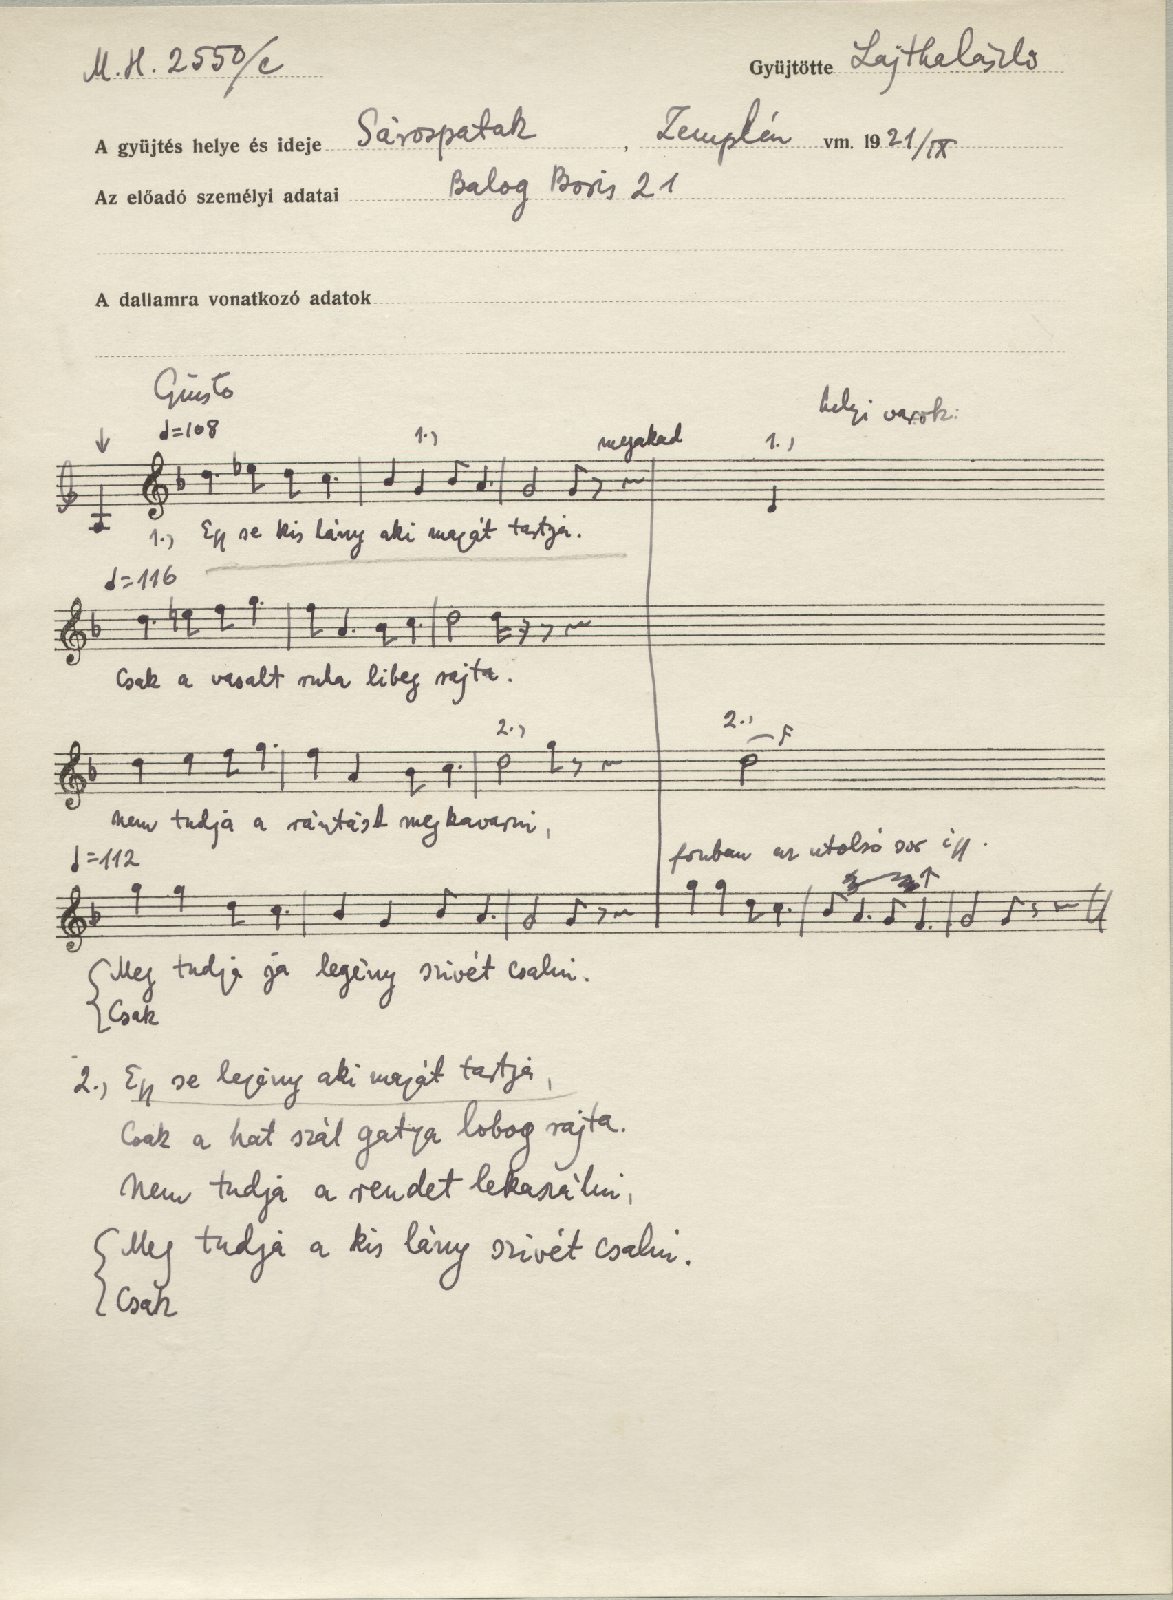 M.H. 2550/c
Gyüjtötte Lajtha László
A gyüjtés helye és ideje Sárospatak, Zemplén vm. 1921/IX
Az előadó személyi adatai Balog Boris 21
A dallamra vonatkozó adatok
Giusto
helyi
=108 1., megakad 1.,
1., Egy se kis lány aki magát tartja.
=116
Csak a vasalt ruha libeg rajta.
2., 2., F
Nem tudja a rántást megkavarni,
=112 fonban az utolsó sor így.
Meg tudja ja legény szivét csalni.
Csak
2., Egy se legény aki magát tartja,
Csak a hat szál gatya lobog rajta.
Nem tudja a rendet lekaszálni,
Meg tudja a kis lány szivét csalni.
Csak